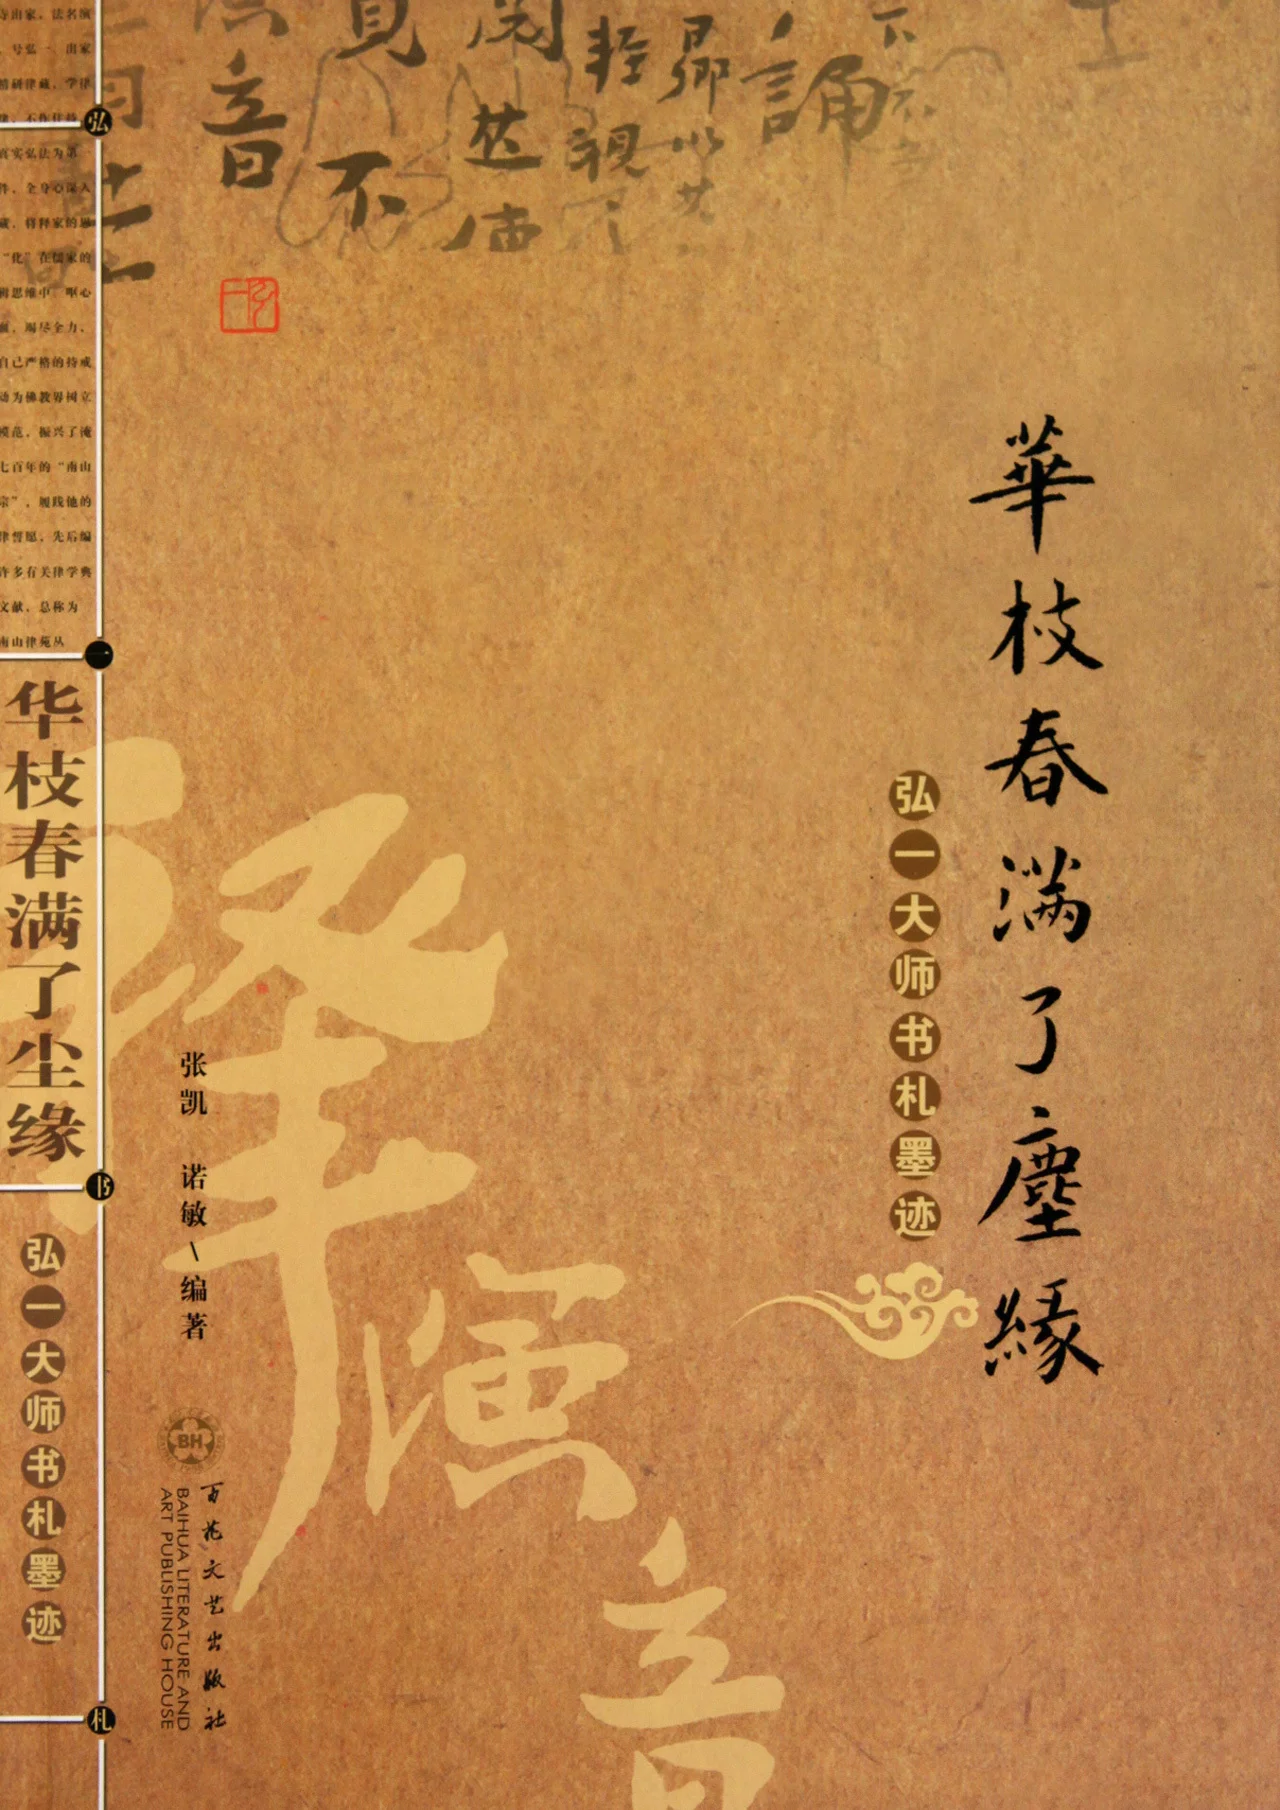 華枝春满了塵緣
弘一大师书札墨迹
张凯 诺敏\编著
BH
百花文艺出版社
BAIHUA LITERATURE AND
ART PUBLISHING HOUSE
寺出家，法名演
，号弘一 出家
精研律藏，学律
真实弘法为第一
件，全身心深入
藏，将释家的思
“化”在儒家的
辑思维中 呕心
血，竭尽全力、
自己严格的持戒
动为佛教界树立
模范，振兴了淹
七百年的“南山
宗”，履践他的
律誓愿，先后编
许多有关律学典
文献，总称为
南山律苑丛
弘
一
书
札
华枝春满了尘缘
弘一大师书札墨迹
音
不
視
誦
演
音